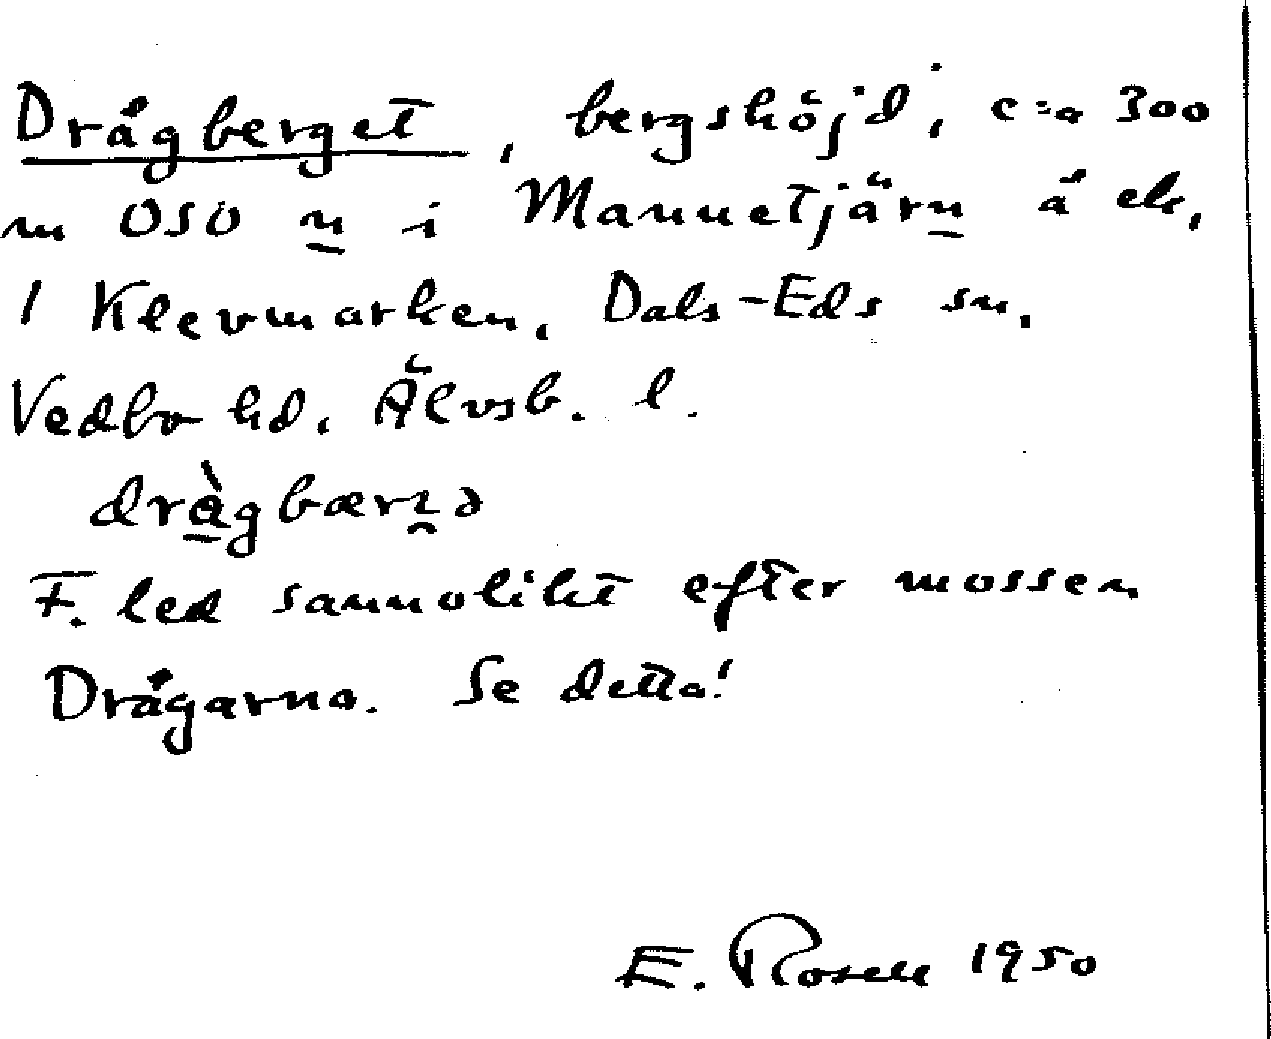 Drågberget, bergshöjd, c:a 300
m OSO n i Mannetjärn å ek.
1 Klevmarken, Dals-Eds sn,
Vedbo hd, Älvsb. l.
F. led sannolikt efter mossen
Drågarna. Se detta!
E. Rosell 1950